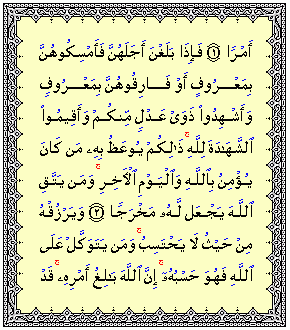 أَمْرًا ۝١ فَإِذَا بَلَغْنَ أَجَلَهُنَّ فَأَمْسِكُوهُنَّ
بِمَعْرُوفٍ أَوْ فَارِقُوهُنَّ بِمَعْرُوفٍ
وَأَشْهِدُواْ ذَوَىْ عَدْلٍ مِّنكُمْ وَأَقِيمُواْ
ٱلشَّهَٰدَةَ لِلَّهِ ۚ ذَٰلِكُمْ يُوعَظُ بِهِۦ مَن كَانَ
يُؤْمِنُ بِٱللَّهِ وَٱلْيَوْمِ ٱلْءَاخِرِ ۚ وَمَن يَتَّقِ
ٱللَّهَ يَجْعَل لَّهُۥ مَخْرَجًا ۝٢ وَيَرْزُقْهُ
مِنْ حَيْثُ لَا يَحْتَسِبُ ۚ وَمَن يَتَوَكَّلْ عَلَى
ٱللَّهِ فَهُوَ حَسْبُهُۥٓ ۚ إِنَّ ٱللَّهَ بَٰلِغُ أَمْرِهِۦ ۚ قَدْ